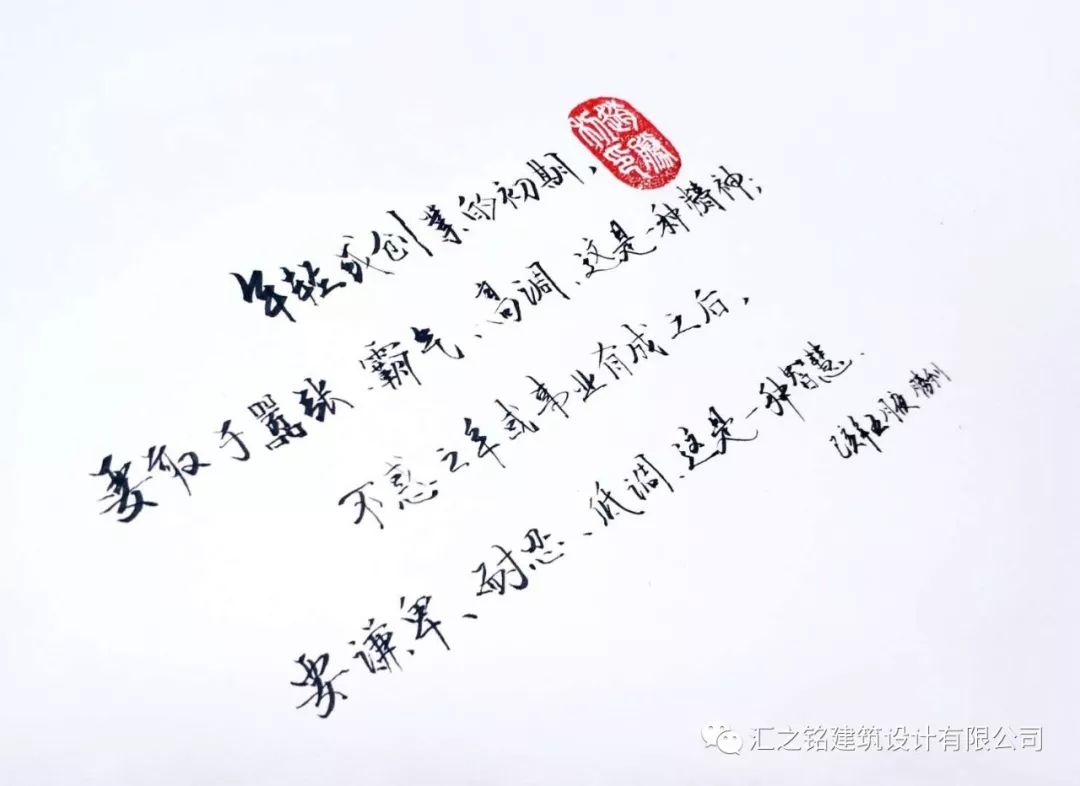 年轻或创业的初期、
要敢于嚣张、霸气、高调、这是一种精神；
不惑之年或事业有成之后、
要谦卑、耐忍、低调、这是一种智慧.
汇之铭建筑设计有限公司